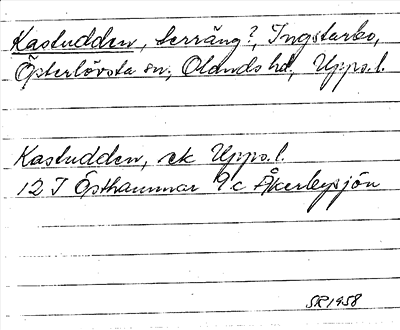 Kastudden, terräng?, Ingstarbo,
Österlövsta sn, Olands hd, Upps.l.
Kastudden, ek Upps.l.
12 I Östhammar 9c Åkerbysjön
SR1958